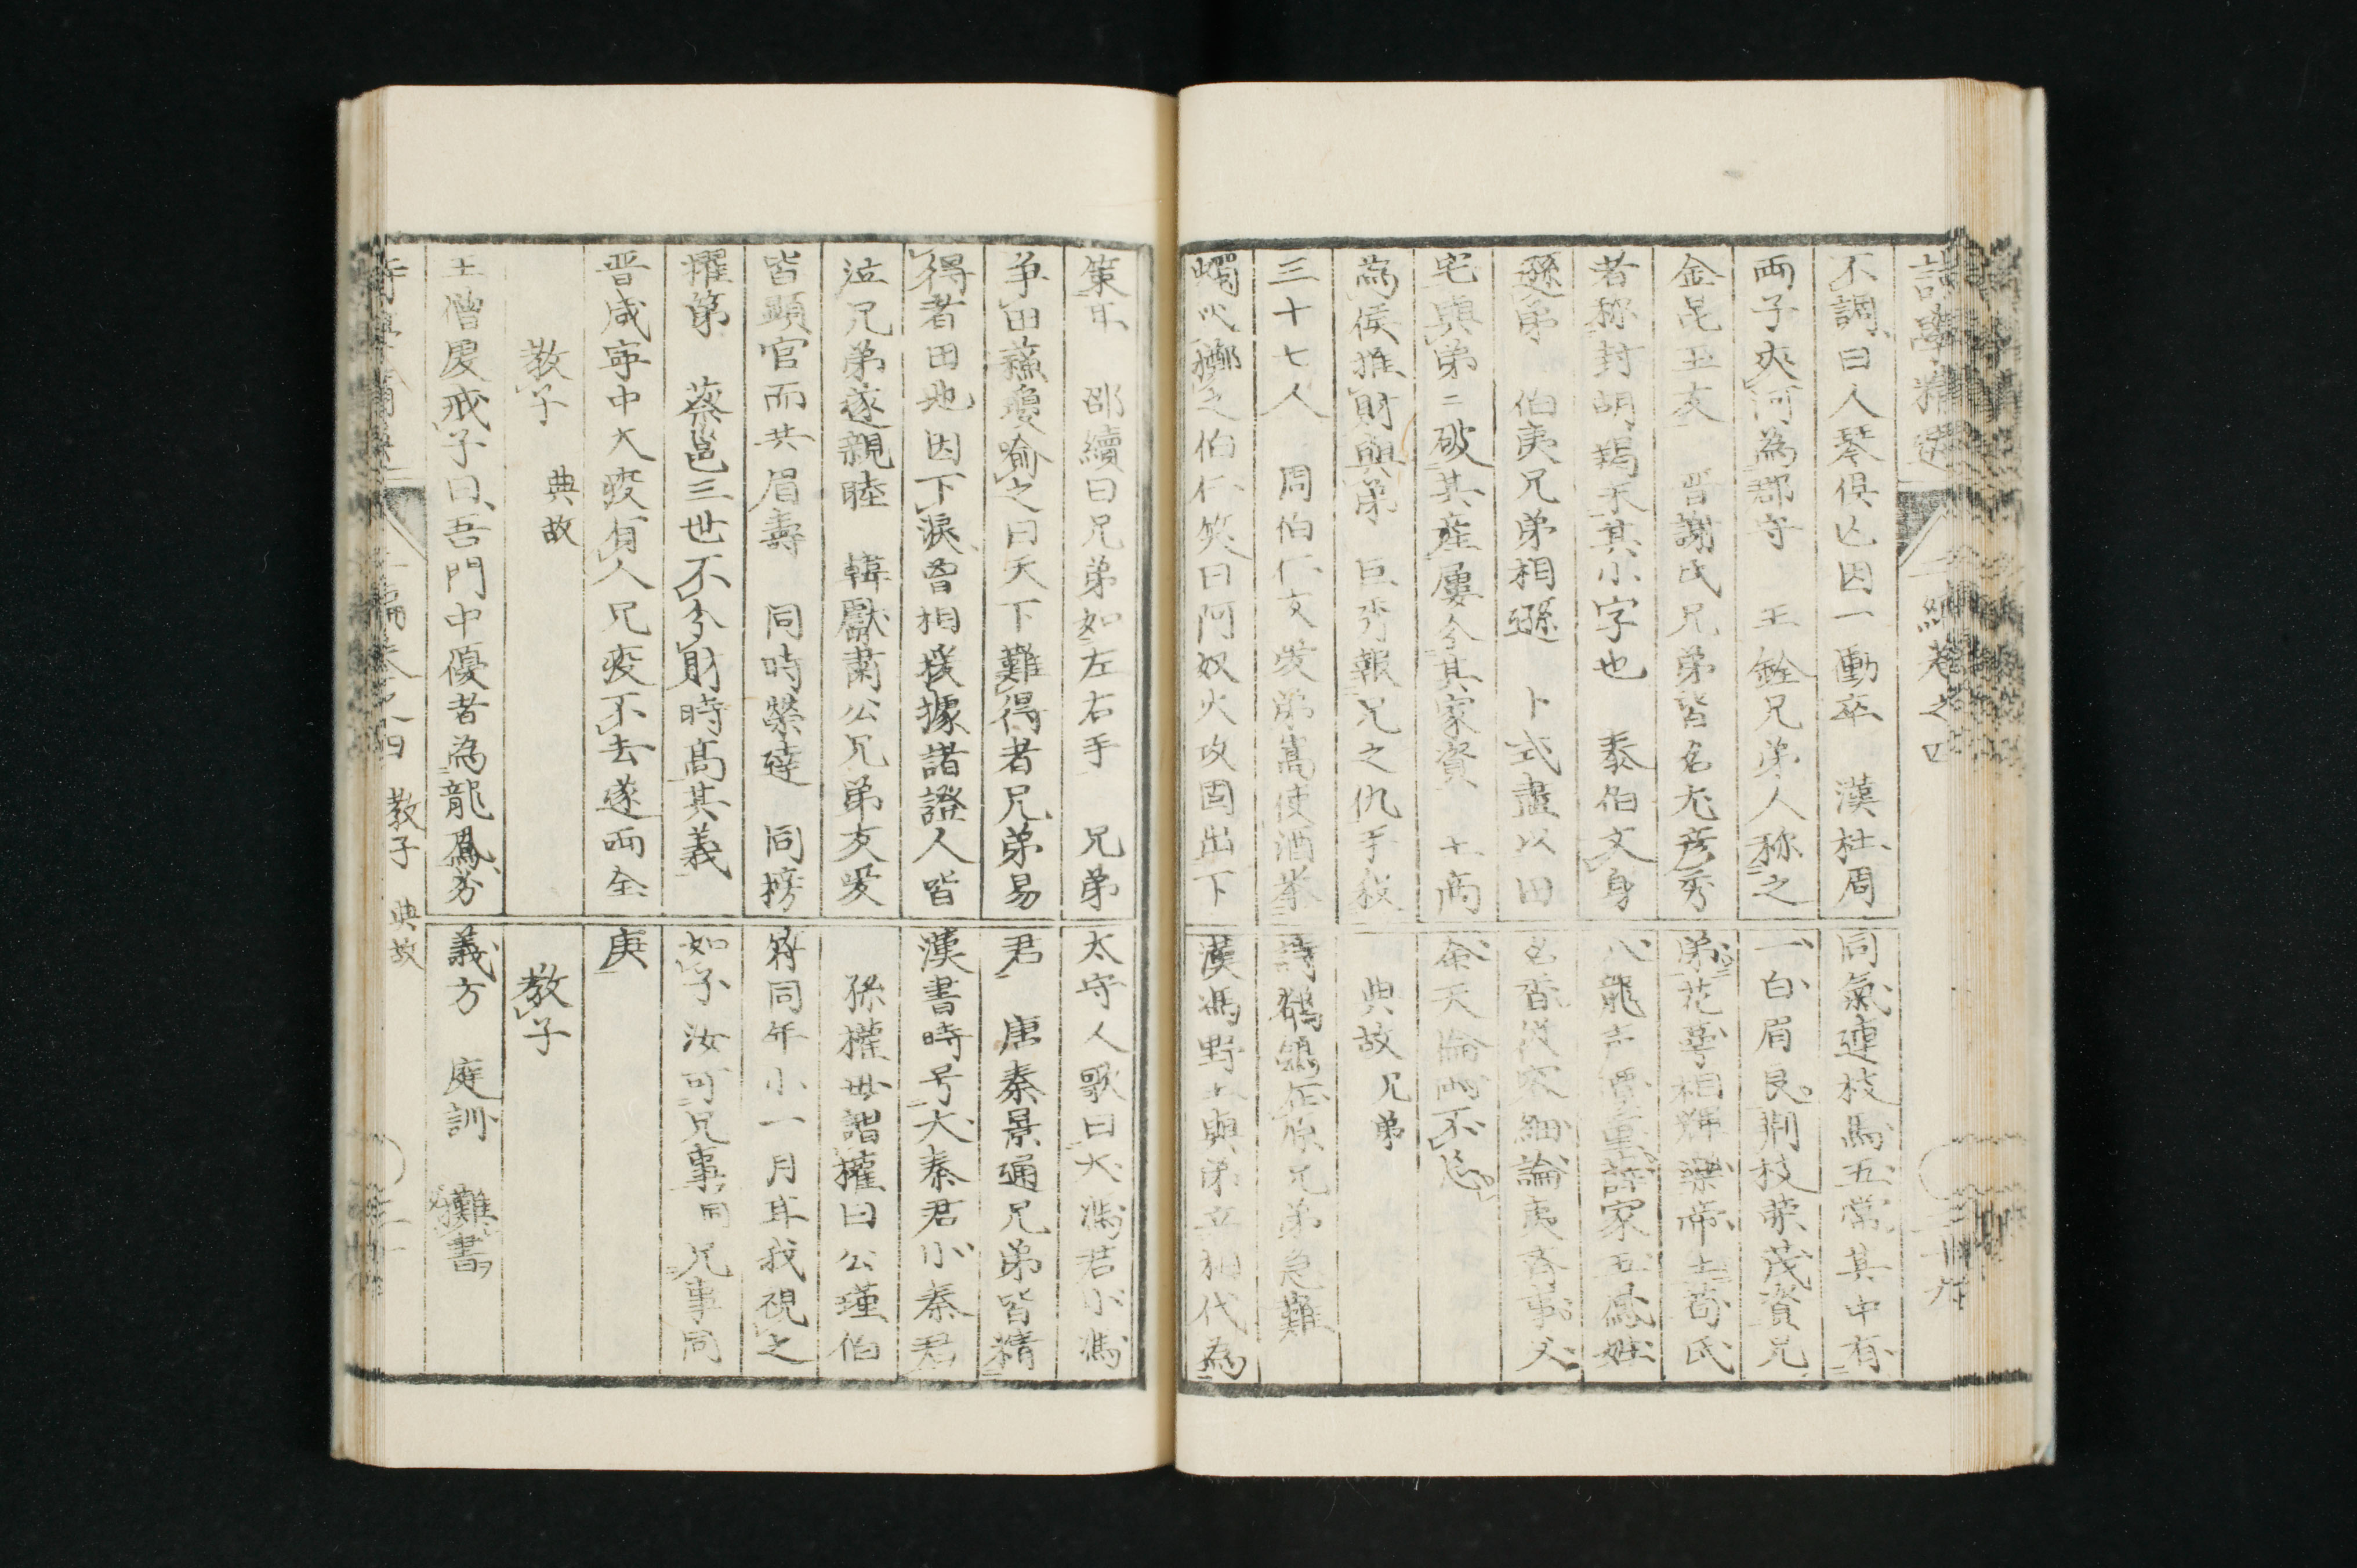 詩學精選 二編卷之四 二十九
不調曰人琴俱亡因一慟卒 漢杜周
兩子夾河為郡守 王銓兄弟人称之
金昆玉友 晋謝氏兄弟皆名尤彦秀
者称封胡羯末其小字也 泰伯文身
遜弟 伯夷兄弟相遜 卜式盡以田
宅與弟二破其産屢分其家資 十商
為侯推財與弟 巨秀報兄之仇手殺
三十七人 周伯仁友愛弟嵩使酒举
蠋火擲之伯仁笑曰阿奴火攻固出下
同氣連枝馬五常其中有
一白眉良荆枝荣茂資兄
弟花萼相輝樂帝王荀氏
八龍声價重薛家五鳳姓
名香從容細論夷斉事父
命天倫兩不忘
典故 兄弟
詩鶺鴒在原兄弟急難
漢馮野王與弟立相代為
策尓 邵續曰兄弟如左右手 兄弟
争田蘓瓊喻之曰天下難得者兄弟易
得者田地因下淚曾相援據諸證人皆
泣兄弟遂親睦 韓獻肅公兄弟友愛
皆顯官而共眉壽 同時榮達 同榜
擢第 蔡邕三世不分財時髙其義
晋咸寧中大疫有人兄疫不去遂両全
教子 典故
王僧虔戒子曰吾門中優者為龍鳳劣
太守人歌曰大馮君小馮
君 唐秦景通兄弟皆精
漢書時号大秦君小秦君
孫權母謂權曰公瑾伯
符同年小一月耳我視之
如子汝可兄事同兄事同
庚
教子
義方 庭訓 書
教子 典故